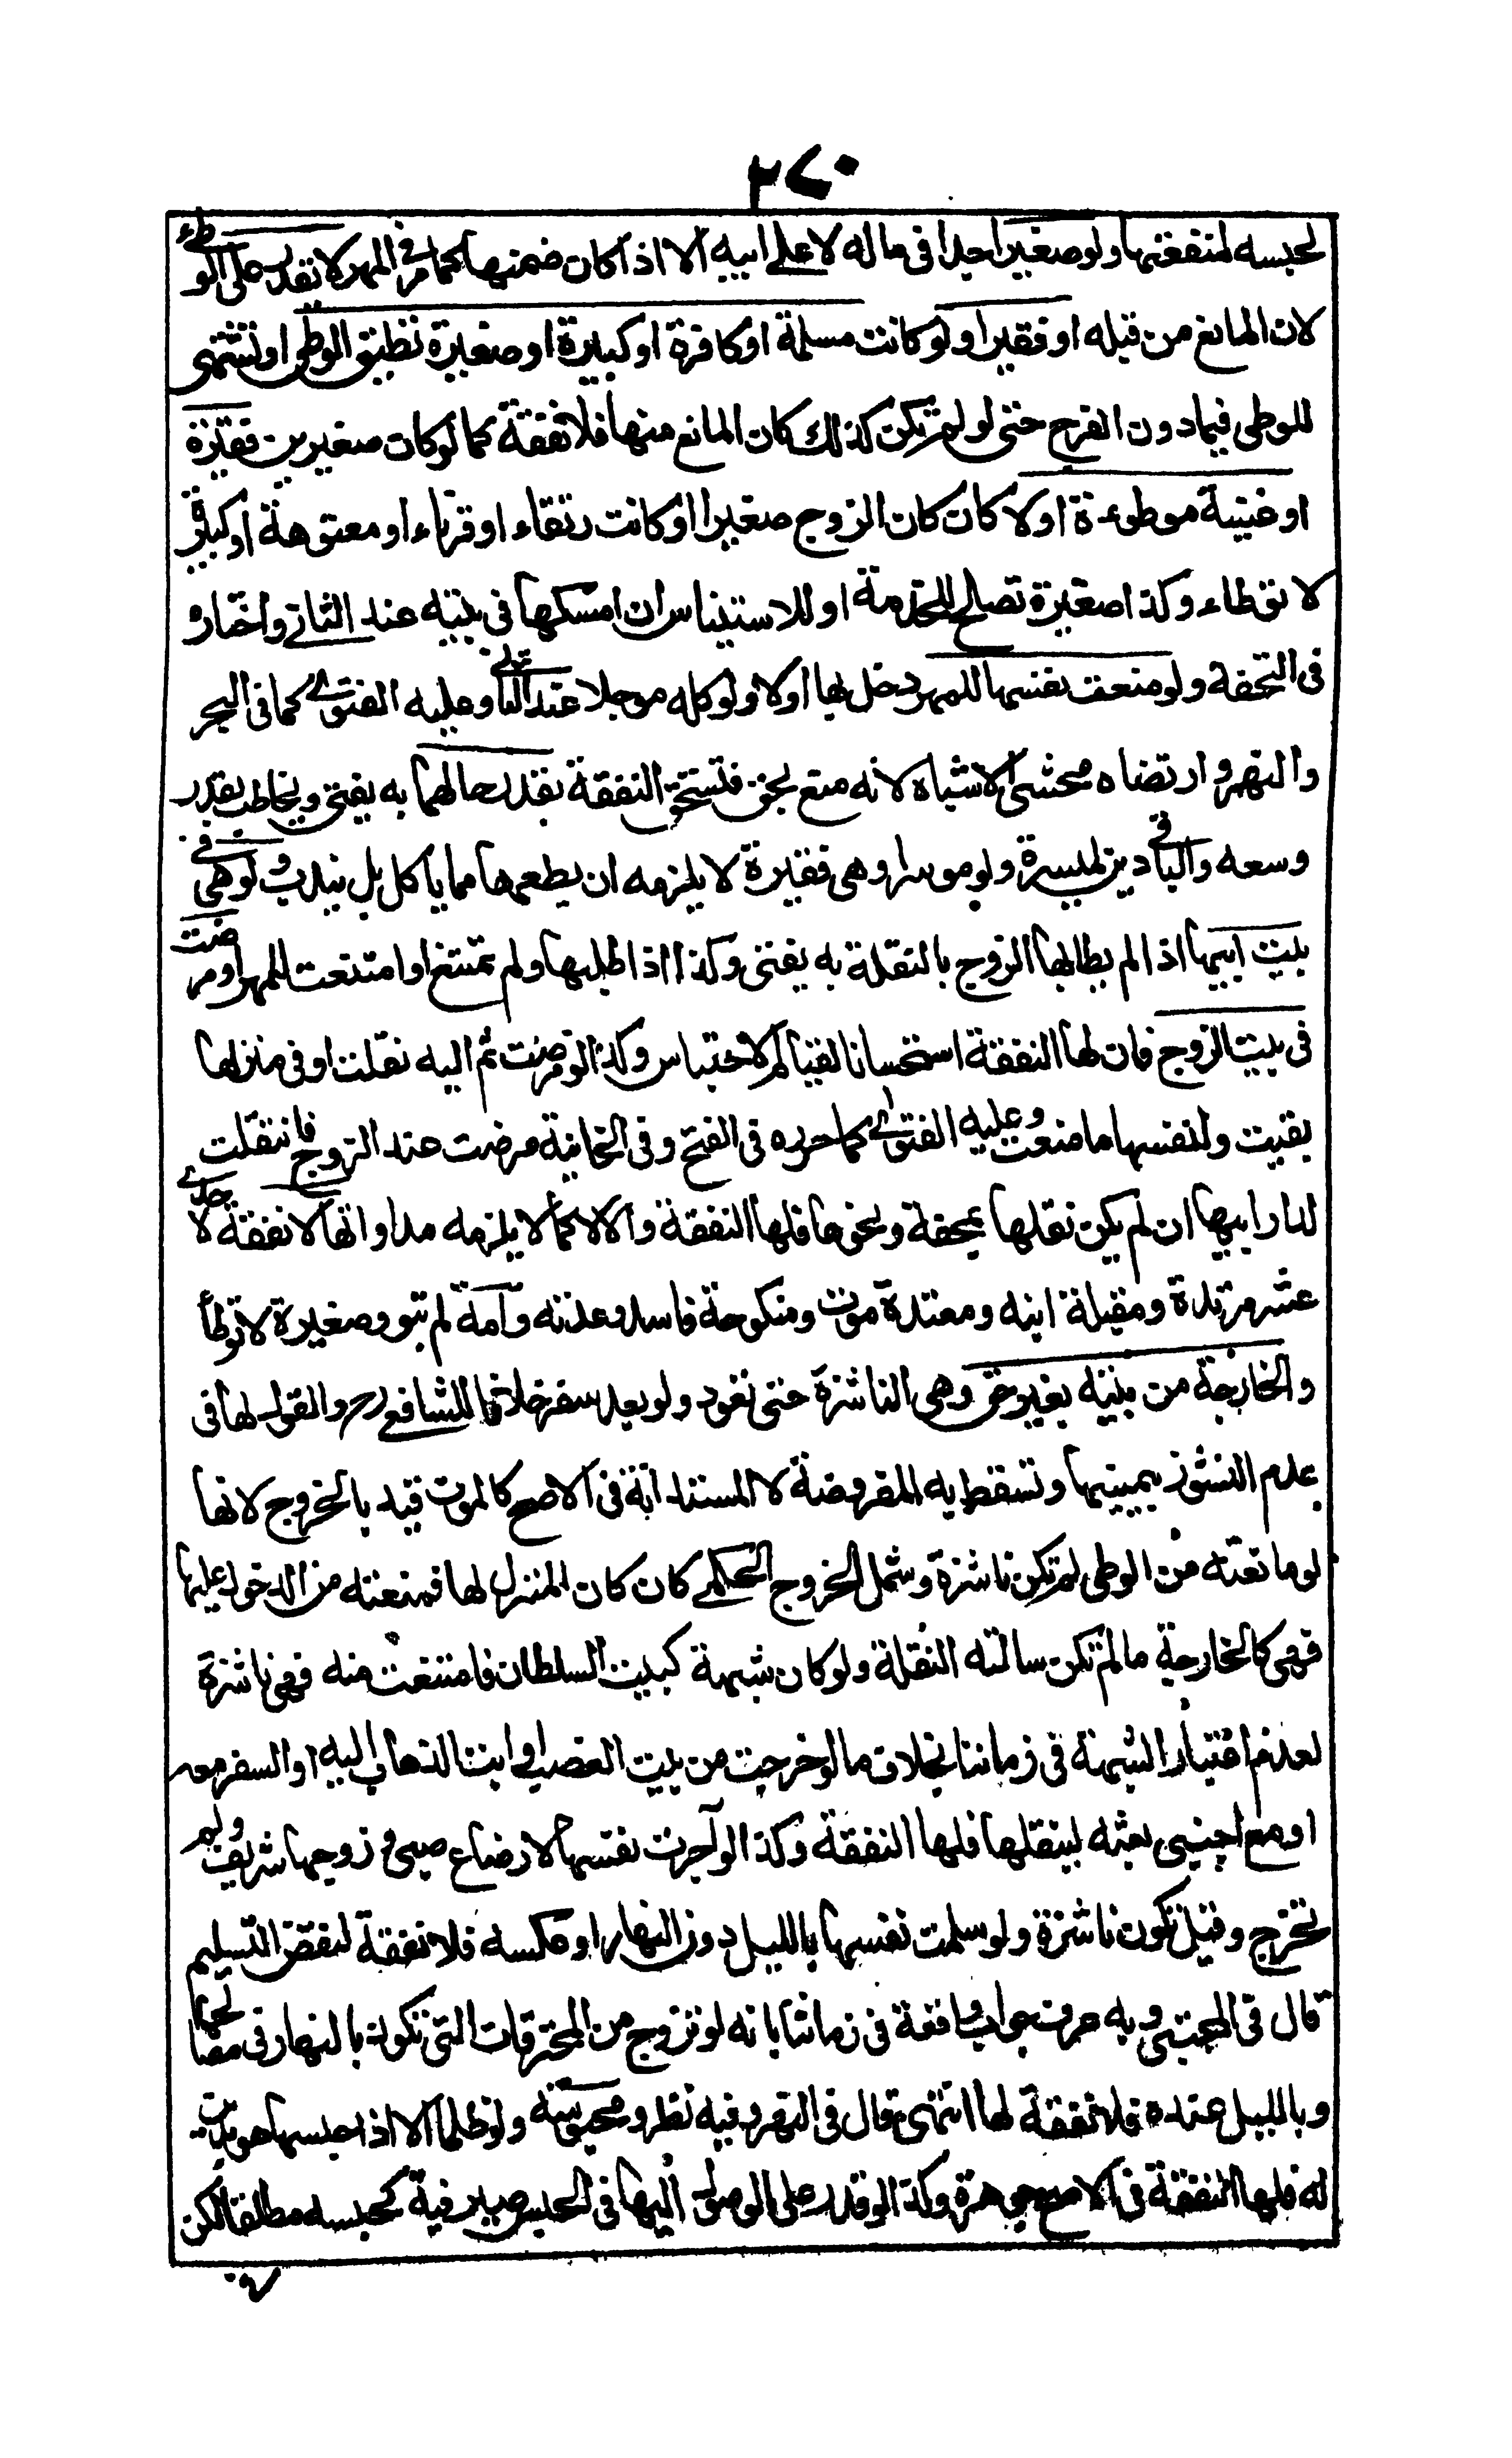 ٢٧٠
لحبسه لمنفعتها ولو صغيرا جدا فى ماله لا على ابيه الا اذا كان ضمنها كما مر فى المهر لا تقدر على الوطئ
لان المانع من قبله او فقيرا ولو كانت مسلمة او كافرة او كبيرة او صغيرة تطيق الوطى او تشتهى
للوطى فيما دون الفرج حتى لو لم تكن كذلك كان المانع منها فلا نفقة كما لو كان صغيرين فقيرة
او غنية موطوءة او لا كان كان الزوج صغيرا او كانت رتقاء او قرناء او معتوهة او كبيرة
لا توطاء وكذا صغيرة تصلح للخدمة او للاستيناس ان امسكها فى بيته عند الثانى واختاره
فى التحفة ولو منعت نفسها للمهر دخل بها اولا ولو كله موجلا عند الثانى وعليه الفتوى كما فى البحر
والنهر وارتضاه محشى الاشباه لانه منع بحق فتستحق النفقة بقدر حالهما به يفتى ويخاطب بقدر
وسعه والباقى دين لميسرة ولو موسرا وهى فقيرة لا يلزمه ان يطعمها مما ياكل بل يندب ولو هى فى
بيت ابيها اذا لم يطالبها الزوج بالنقلة به يفتى وكذا اذا طلبها ولم تمتنع او امتنعت للمهر او مرضت
فى بيت الزوج فان لها النفقة استحسانا لقيام الاحتباس وكذا لو مرضت ثم اليه نقلت او فى منزلها
بقيت ولنفسها ما منعت وعليه الفتوى كما حرره فى الفتح وفى الخانية مرضت عند الزوج فانتقلت
لدار ابيها ان لم يكن نقلها بمحفة ونحوها فلها النفقة والا لا كما لا يلزمه مداواتها لا نفقة لاحدى
عشر مرتدة ومقبلة ابنه ومعتدة موت ومنكوحة فاسدا وعدته وامة لم تبو وصغيرة لا توطأ
والخارجة من بيته بغير حق وهى الناشزة حتى تعود ولو بعد سفر خلافا للشافعى رح والقول لها فى
عدم النشوز بيمينها وتسقط به المفروضة لا المستدانة فى الاصح كالموت قيد بالخروج لانها
لو مانعته من الوطى لم تكن ناشزة وشمل الخروج الحكمى كان كان المنزل لها فمنعته من الدخول عليها
فهى كالخارجة ما لم تكن سالته النقلة ولو كان شبهة كبيت السلطان فامتنعت منه فهى ناشزة
لعدم اعتبار الشبهة فى زماننا بخلاف ما لو خرجت من بيت الغصب او ابت الذهاب اليه او السفر معه
او مع اجنبى بعثه لينقلها فلها النفقة وكذا لو آجرت نفسها لارضاع صبى وزوجها شريف ولم
تخرج وقيل تكون ناشزة ولو سلمت نفسها بالليل دون النهار او عكسه فلا نفقة لنقص التسليم
قال فى المجتبى وبه عرف جواب واقعة فى زماننا بانه لو تزوج من المحترفات التى تكون بالنهار فى مصالحها
وبالليل عنده فلا نفقة لها انتهى قال فى النهر وفيه نظر ومحبوسة ولو ظلما الا اذا حبسها هو بدين
له فلها النفقة فى الاصح جوهرة وكذا لو قدر على الوصول اليها فى الحبس صيرفية كحبسه مطلقا لكن